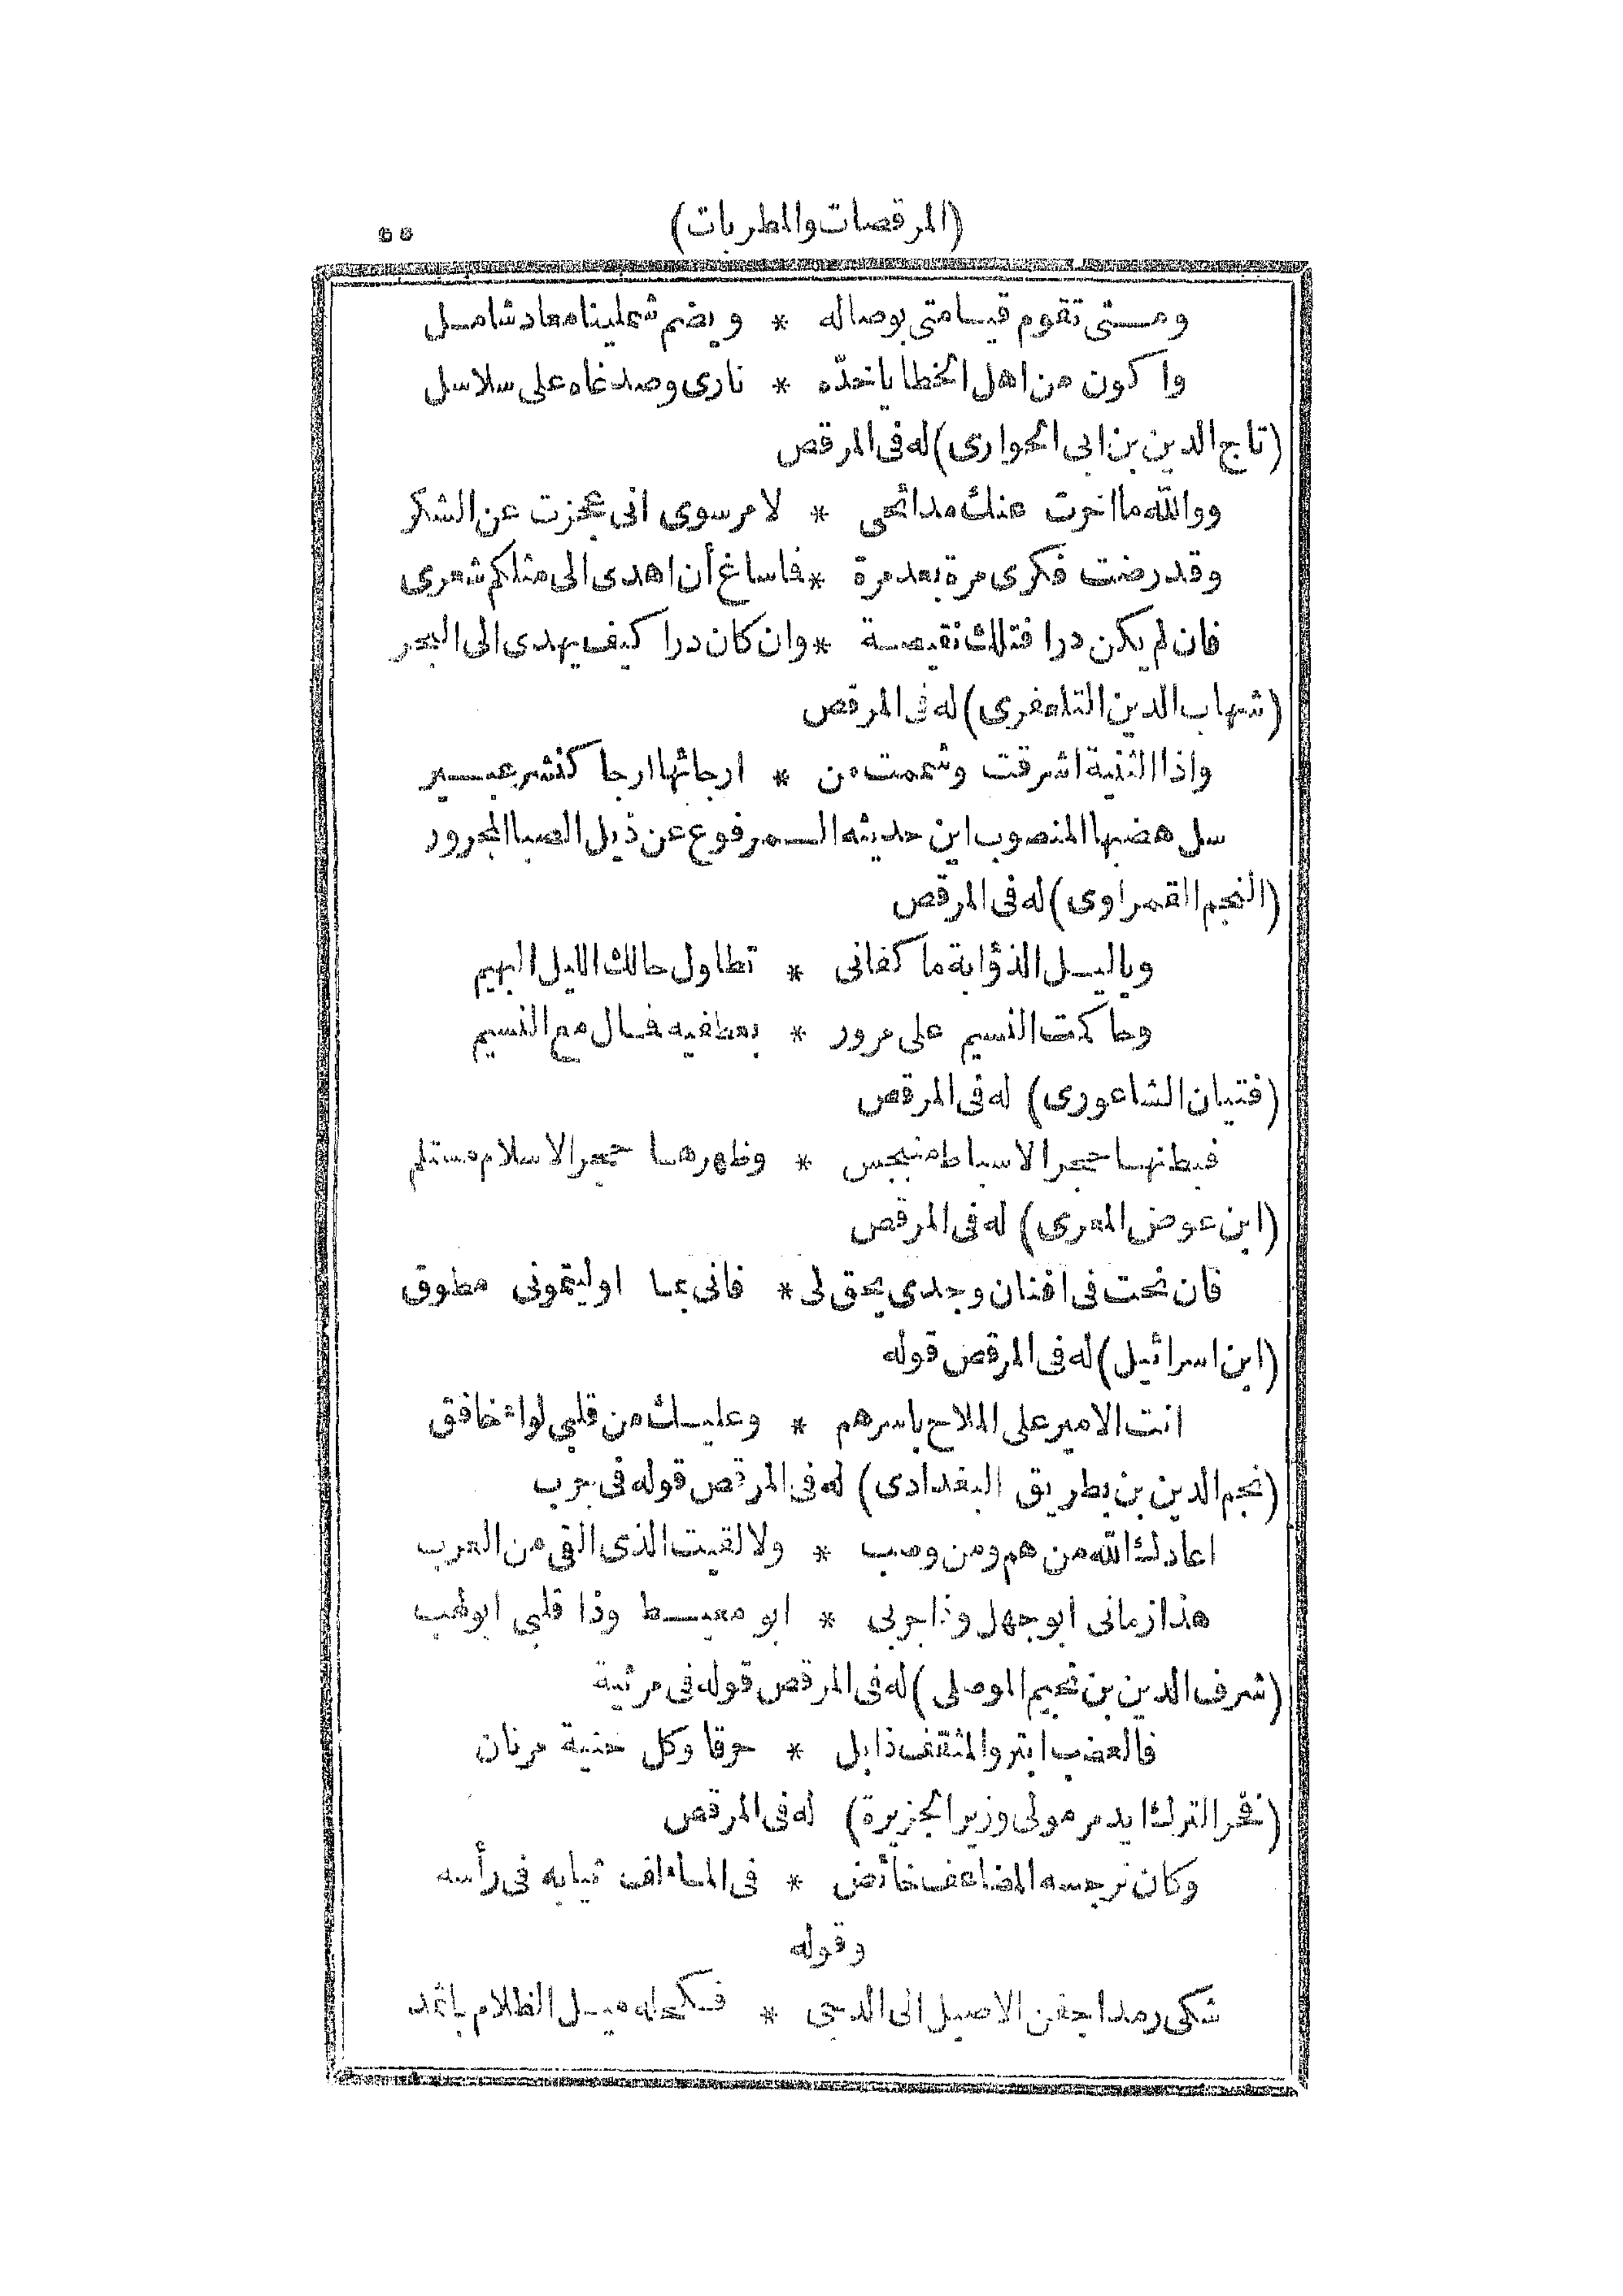 (المرقصات والمطربات) ٥٥
ومتى تقوم قيامتى بوصاله * ويضم شملينا معاد شامل
واكون من اهل الخطايا خدّه * نارى وصدغاه على سلاسل
(تاج الدين بن ابى الحوارى) له فى المرقص
ووالله ما اخرت عنك مدائحى * لامر سوى انى عجزت عن الشكر
وقد رضت فكرى مرة بعد مرة * فاساغ أن اهدى الى مثلكم شعرى
فان لم يكن درا فتلك نقيصة * وان كان درا كيف يهدى الى البحر
(شهاب الدين التلعفرى) له فى المرقص
واذا الثنية اشرقت وشممت من * ارجائها ارجا كنشر عبير
سل هضبها المنصوب اين حديثه المرفوع عن ذيل الصبا المجرور
(النجم القمراوى) له فى المرقص
وياليل الذؤابة ما كفانى * تطاول حالك الليل البهيم
وحاكمت النسيم على مرور * بعطفيه فمال مع النسيم
(فتيان الشاغورى) له فى المرقص
فبطنها حجر الاسباط منبجس * وظهرها حجر الاسلام مستلم
(ابن عوض المعرى) له فى المرقص
فان نحت فى افنان وجدى يحق لى * فانى بما اوليتمونى مطوق
(ابن اسرائيل) له فى المرقص قوله
انت الامير على الملاح باسرهم * وعليك من قلبى لواء خافق
(نجم الدين بن بطريق البغدادى) له فى المرقص قوله فى جرب
اعادك الله من هم ومن وصب * ولا لقيت الذى القى من العرب
هذا زمانى ابو جهل وذا جربى * ابو معيط وذا قلبى ابو لهب
(شرف الدين بن نجيم الموصلى) له فى المرقص قوله فى مرثية
فالعضب ابتر والمثقف ذابل * حرقا وكل حنية مرنان
(فخر الترك ايدمر مولى وزير الجزيرة) له فى المرقص
وكان نرجسه المضاعف خائض * فى الماء لف ثيابه فى رأسه
وقوله
شكى رمدا جفن الاصيل الى الدجى * فكحله ميل الظلام باثمد